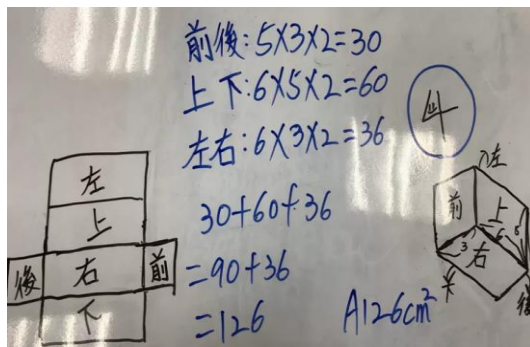 前後:5×3×2=30
上下:6×5×2=60
左右:6×3×2=36
30+60+36
=90+36
=126
A126cm²
四
左
上
後 右 前
下
左
前 上
3 右 6
下 後